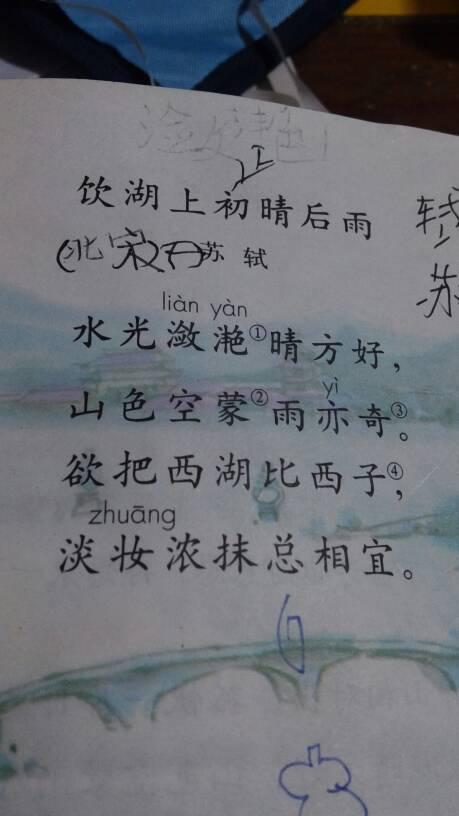 上
饮湖上初晴后雨
轼
(北宋)苏轼
苏
liàn yàn
水光潋滟①晴方好，
yì
山色空蒙②雨亦奇③。
欲把西湖比西子④，
zhuāng
淡妆浓抹总相宜。